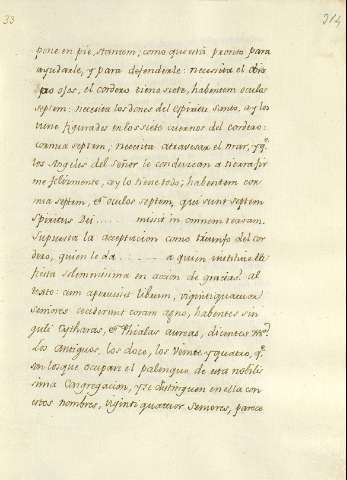 33
314
pone en pie, stantem; como que está pronto para
ayudarle, y para defenderle: necesita el
ojos, el cordero tiene siete, habentem oculos
septem: necesita los dones del Espiritu Santo, ay los
tiene figurados en los siete cuernos del cordero:
cornua septem; necesita atravesar el mar, y q.e
los Angeles del Señor lo conduzcan a tierra fir
me felizmente, ay lo tiene todo; habentem cor
nua septem, et oculos septem, qui sunt septem
Spiritus Dei ..... missi in omnem terram.
Supuesta la aceptacion como triunfo del cor
dero, quien le da ...... a quien instituie
fiesta solemnissima en accion de gracias. al
texto: cum aperuisset librum, viginti quatuor
seniores ceciderunt coram agno, habentes sin
guli Cytharas, et Phialas aureas, dicentes
Los Antiguos, los doce, los veinte y quatro, q.e
son los que ocupan el palenque de esta nobilis
sima Congregacion, y se distinguen en ella con
estos nombres, viginti quatuor seniores, parece